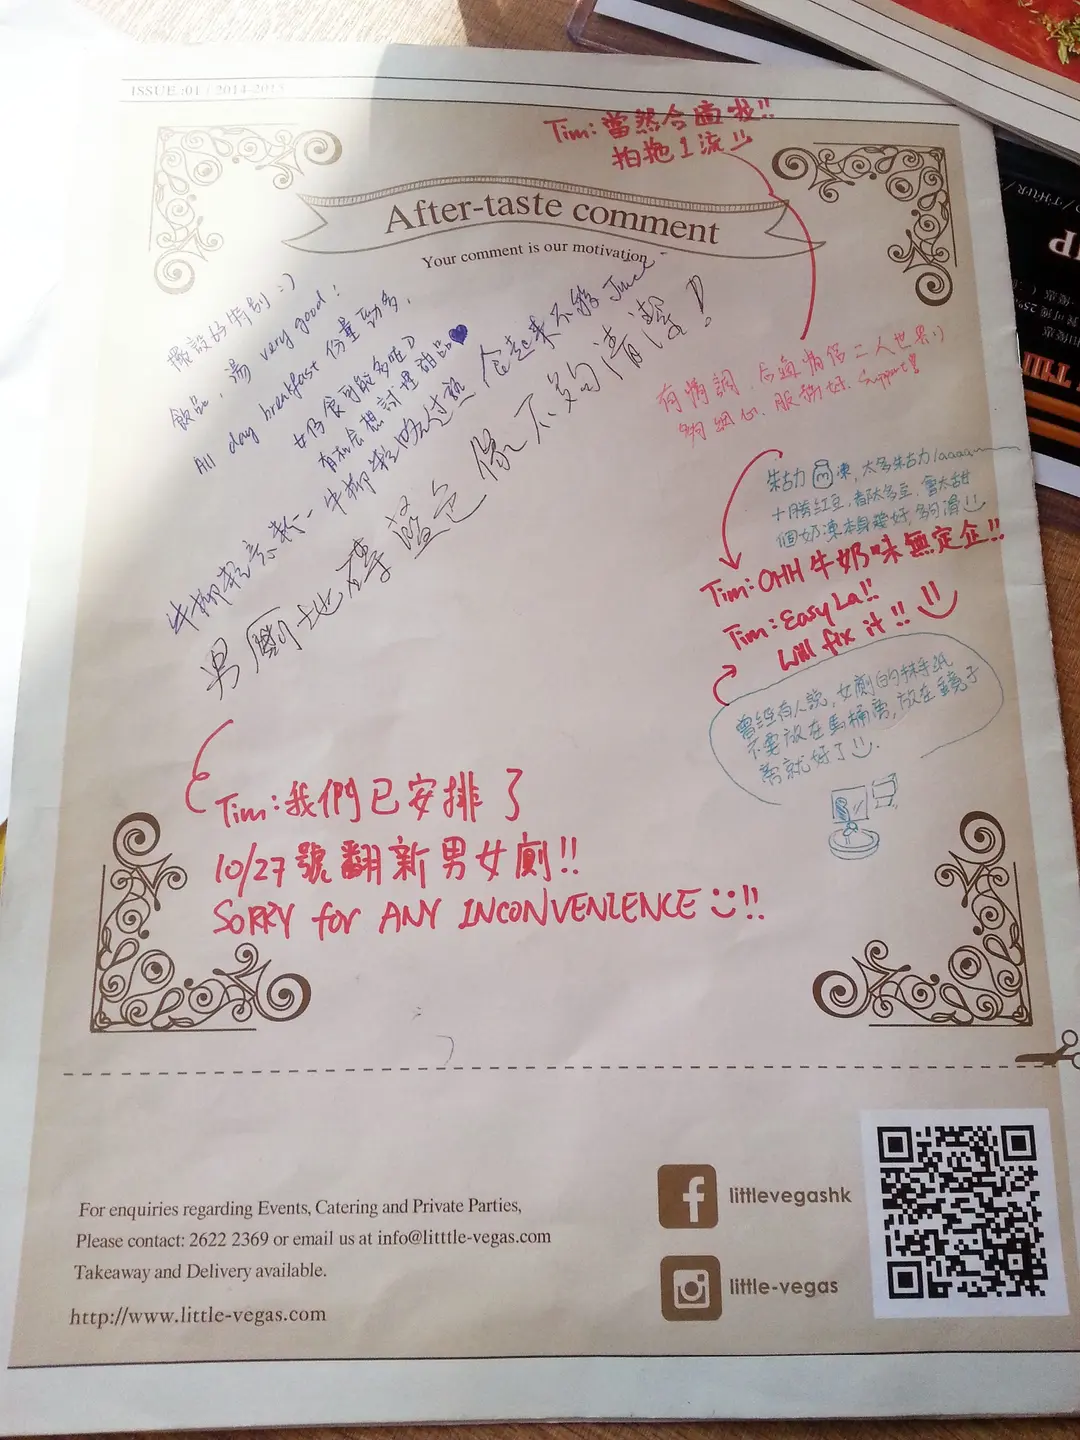 ISSUE :01 / 2014-2015
Tim: 當然合適啦!!
拍拖1流
After-taste comment
Your comment is our motivation
擺設的特別 :)
飲品、湯 very good!
All day breakfast 份量夠多,
女仔食可能多咗D
有機會想試埋甜品
牛柳粒過熟 食起來不夠 Juicy
男廁地庫 藍色 像不夠清潔!!
有情調, 啱情侶二人世界:)
夠細心. 服務好. Support!!
朱古力奶凍, 太多朱古力laaaaa
十勝紅豆, 都太多豆, 會太甜
個奶凍本身幾好, 夠滑
Tim: OHH 牛奶味無定企!!
Tim: Easy La!!
Will fix it!!
曾經有人說, 女廁的抹手紙
不要放在馬桶旁, 放在鏡子
旁就好了.
Tim: 我們已安排了
10/27號翻新男女廁!!
SORRY for ANY INCONVENIENCE !!
For enquiries regarding Events, Catering and Private Parties,
Please contact: 2622 2369 or email us at info@litttle-vegas.com
Takeaway and Delivery available.
http://www.little-vegas.com
littlevegashk
little-vegas